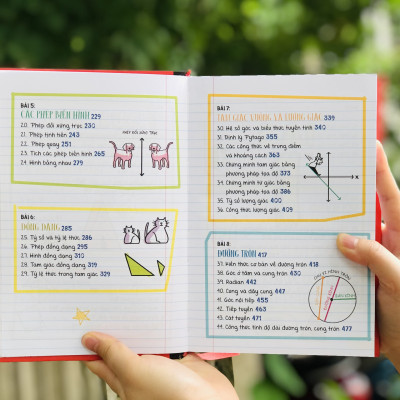 BÀI 5:
CÁC PHÉP BIẾN HÌNH 229
20. Phép đối xứng trục 230
21. Phép tịnh tiến 243
22. Phép quay 251
23. Tích các phép biến hình 265
24. Hình bằng nhau 279
BÀI 6:
ĐỒNG DẠNG 285
25. Tỷ số và tỷ lệ thức 286
26. Phép đồng dạng 295
27. Hình đồng dạng 310
28. Tam giác đồng dạng 319
29. Tỷ lệ thức trong tam giác 329
BÀI 7:
TAM GIÁC VUÔNG VÀ LƯỢNG GIÁC 339
30. Hệ số góc và biểu thức tuyến tính 340
31. Định lý Pytago 355
32. Các công thức về trung điểm
và khoảng cách 363
33. Chứng minh tam giác bằng
phương pháp tọa độ 373
34. Chứng minh tứ giác bằng
phương pháp tọa độ 386
35. Tỷ số lượng giác 400
36. Công thức lượng giác 409
x
BÀI 8:
ĐƯỜNG TRÒN 417
37. Kiến thức cơ bản về đường tròn 418
38. Góc ở tâm và cung tròn 430
39. Radian 442
40. Cung và dây cung 447
41. Góc nội tiếp 455
42. Tiếp tuyến 463
43. Cát tuyến 471
44. Công thức tính độ dài đường tròn, cung tròn 477